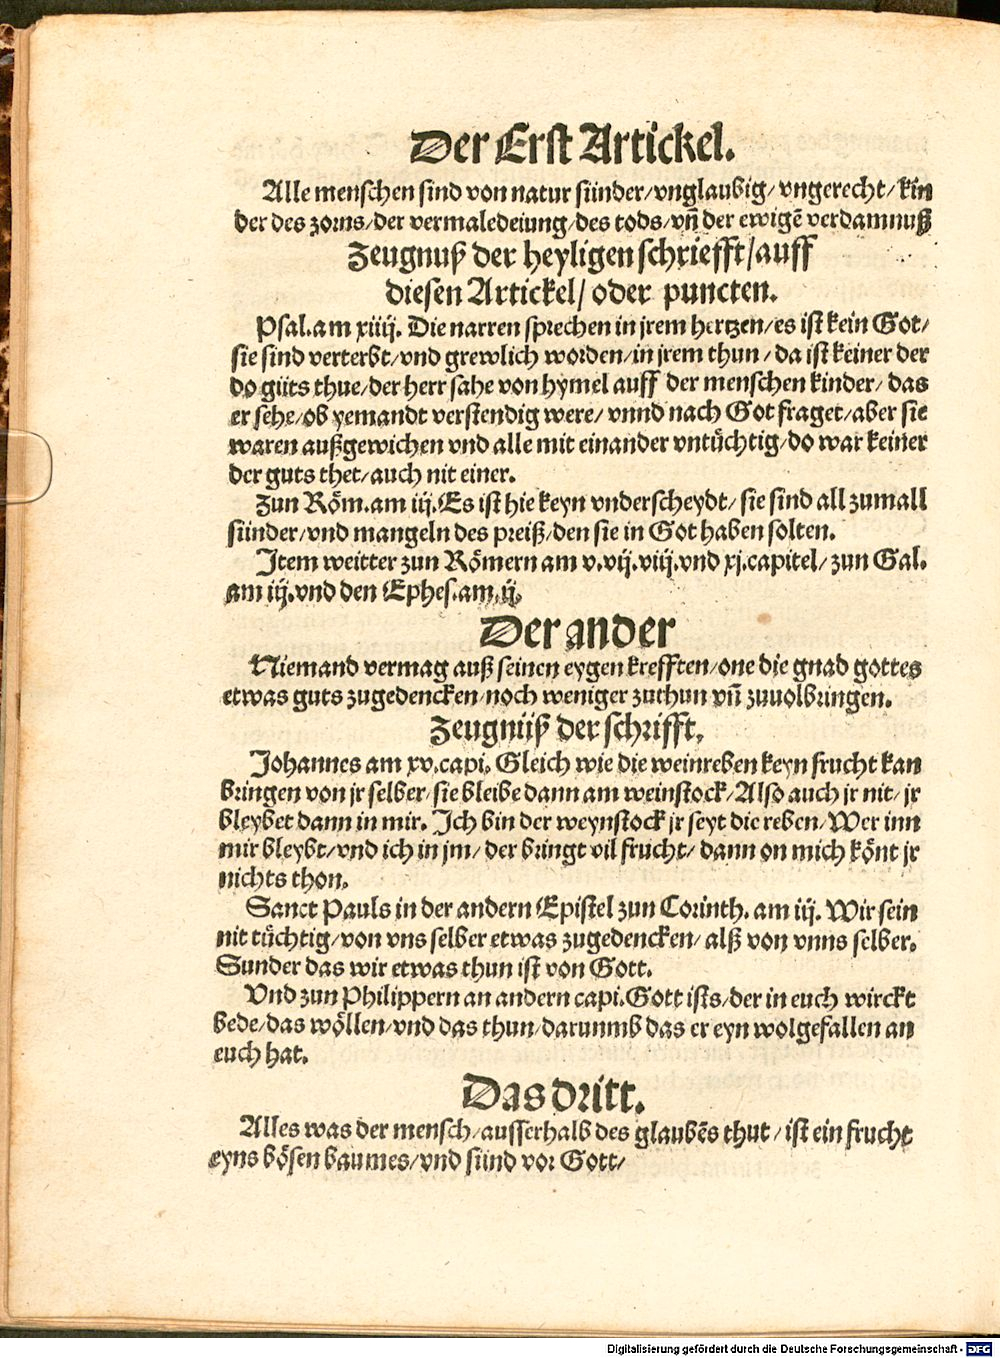 Der Erst Artickel.
Alle menschen sind von natur sünder/vnglaubig/vngerecht/kin
der des zorns/der vermaledeiung/des tods/vñ der ewigẽ verdamnuß
Zeugnuß der heyligen schriefft/auff
diesen Artickel/oder puncten.
Psal.am xiiij. Die narren sprechen in jrem hertzen/es ist kein Got/
sie sind verterbt/vnd grewlich worden/in jrem thun/da ist keiner der
do güts thue/der herr sahe von hymel auff der menschen kinder/das
er sehe/ob yemandt verstendig were/vnnd nach Got fraget/aber sie
waren außgewichen vnd alle mit einander vntüchtig/do war keiner
der guts thet/auch nit einer.
Zun Röm.am iij.Es ist hie keyn vnderscheydt/sie sind all zumall
sünder/vnd mangeln des preiß/den sie in Got haben solten.
Item weitter zun Römern am v.vij.viij.vnd xj.capitel/zun Gal.
am iij.vnd den Ephes.am.ij.
Der ander
Niemand vermag auß seinen eygen krefften/one die gnad gottes
etwas guts zugedencken/noch weniger zuthun vñ zuuolbringen.
Zeugnüß der schrifft.
Johannes am xv.capi. Gleich wie die weinreben keyn frucht kan
bringen von jr selber/sie bleibe dann am weinstock/Also auch jr nit/jr
bleybet dann in mir. Ich bin der weynstock jr seyt die reben/Wer inn
mir bleybt/vnd ich in jm/der bringt vil frucht/dann on mich könt jr
nichts thon.
Sanct Pauls in der andern Epistel zun Corinth. am iij. Wir sein
nit tüchtig/von vns selber etwas zugedencken/alß von vnns selber.
Sunder das wir etwas thun ist von Gott.
Vnd zun Philippern an andern capi.Gott ists/der in euch wirckt
bede/das wöllen/vnd das thun/darunmb das er eyn wolgefallen an
euch hat.
Das dritt.
Alles was der mensch/ausserhalb des glaubẽs thut/ist ein frucht
eyns bösen baumes/vnd sünd vor Gott/
Digitalisierung gefördert durch die Deutsche Forschungsgemeinschaft - DFG